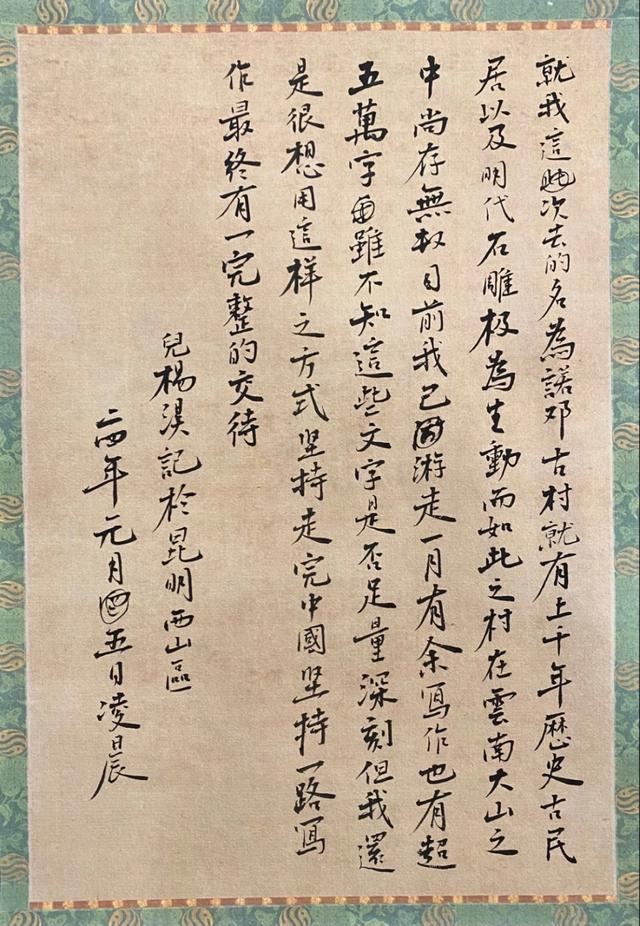 就我這些次去的名為諾邓古村就有上千年歷史古民
居以及明代石雕极為生動而如此之村在雲南大山之
中尚存無数目前我已游走一月有余寫作也有超
五萬字雖不知這些文字是否足量深刻但我還
是很想用這样之方式坚持走完中國坚持一路寫
作最终有一完整的交待
兒楊淏記於昆明西山區
二四年元月五日凌晨